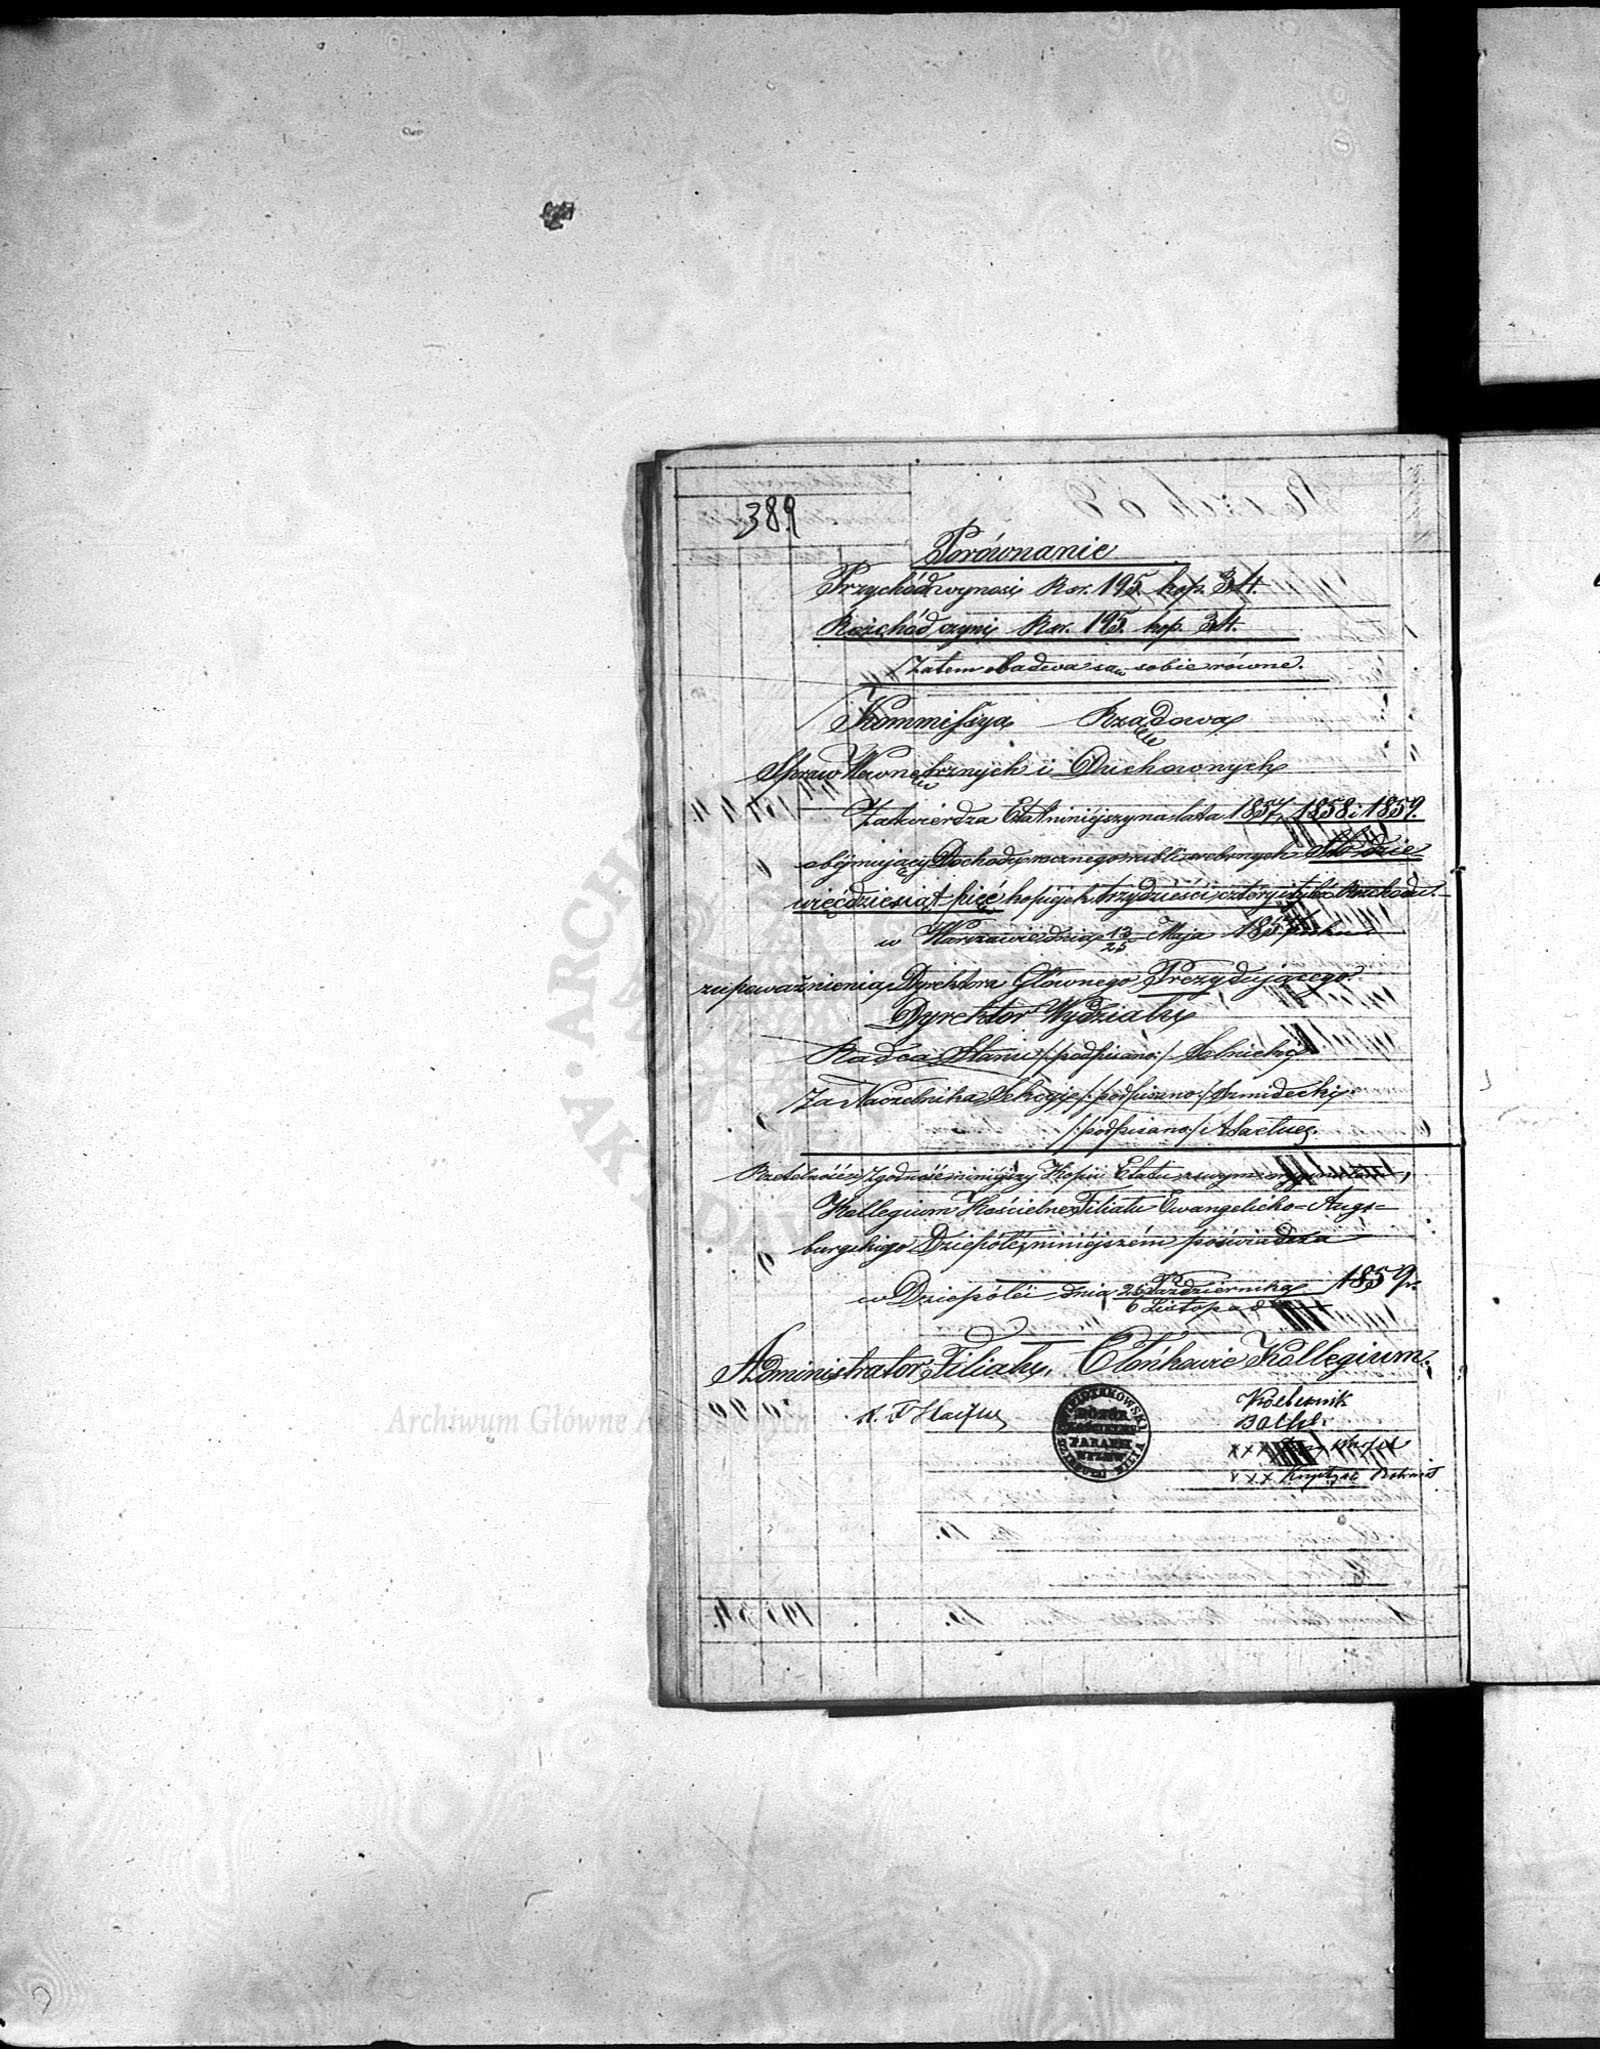 389
Porównanie
Przychód wynosi Rsr. 195. kop. 34.
Rozchód czyni Rsr. 195. kop. 34.
Zatem obadwa są sobie równe.
Kommissya Rządowa
Spraw Wewnętrznych i Duchownych
Zatwierdza Etat niniejszy na lata 1857, 1858 i 1859.
obejmujący Dochodu rocznego rubli srebrnych Sto dzie
więćdziesiąt pięć kopiejek trzydzieści cztery i tyleż Rozchodu.
w Warszawie dnia 13/25 Maja 1857 roku
z upoważnienia Dyrektora Głównego Prezydującego
Dyrektor Wydziału
Radca Stanu /:podpisano:/
Za Naczelnika Sekcyi /:podpisano:/
/:podpisano:/
Rzetelność i zgodność niniejszej Kopii Etatu
Kollegium Kościelne Filiału Ewangelicko=Augs=
burgskiego Dziepółć niniejszém poświadcza
w Dziepółci dnia 25 Października 1859 r.
6 Listopad
Administrator Filiału, Członkowie Kollegium.
Archiwum Główne Akt Dawnych